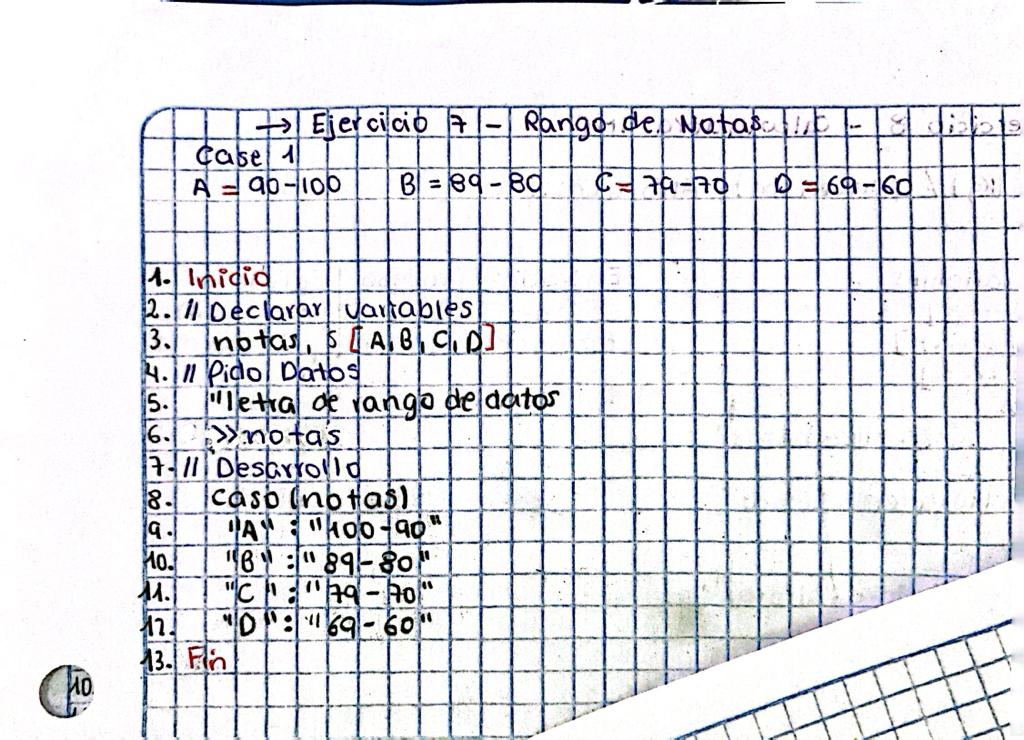 → Ejercicio 7 - Rango de Notas
Case 1
A = 90-100 B = 89-80 C = 79-70 D = 69-60
1. Inicio
2. // Declarar variables
3. notas, s [A, B, C, D]
4. // Pido Datos
5. "letra de rango de datos
6. >> notas
7. // Desarrollo
8. caso (notas)
9. "A" : "100-90"
10. "B" : "89-80"
11. "C" : "79-70"
12. "D" : "69-60"
13. Fin
10